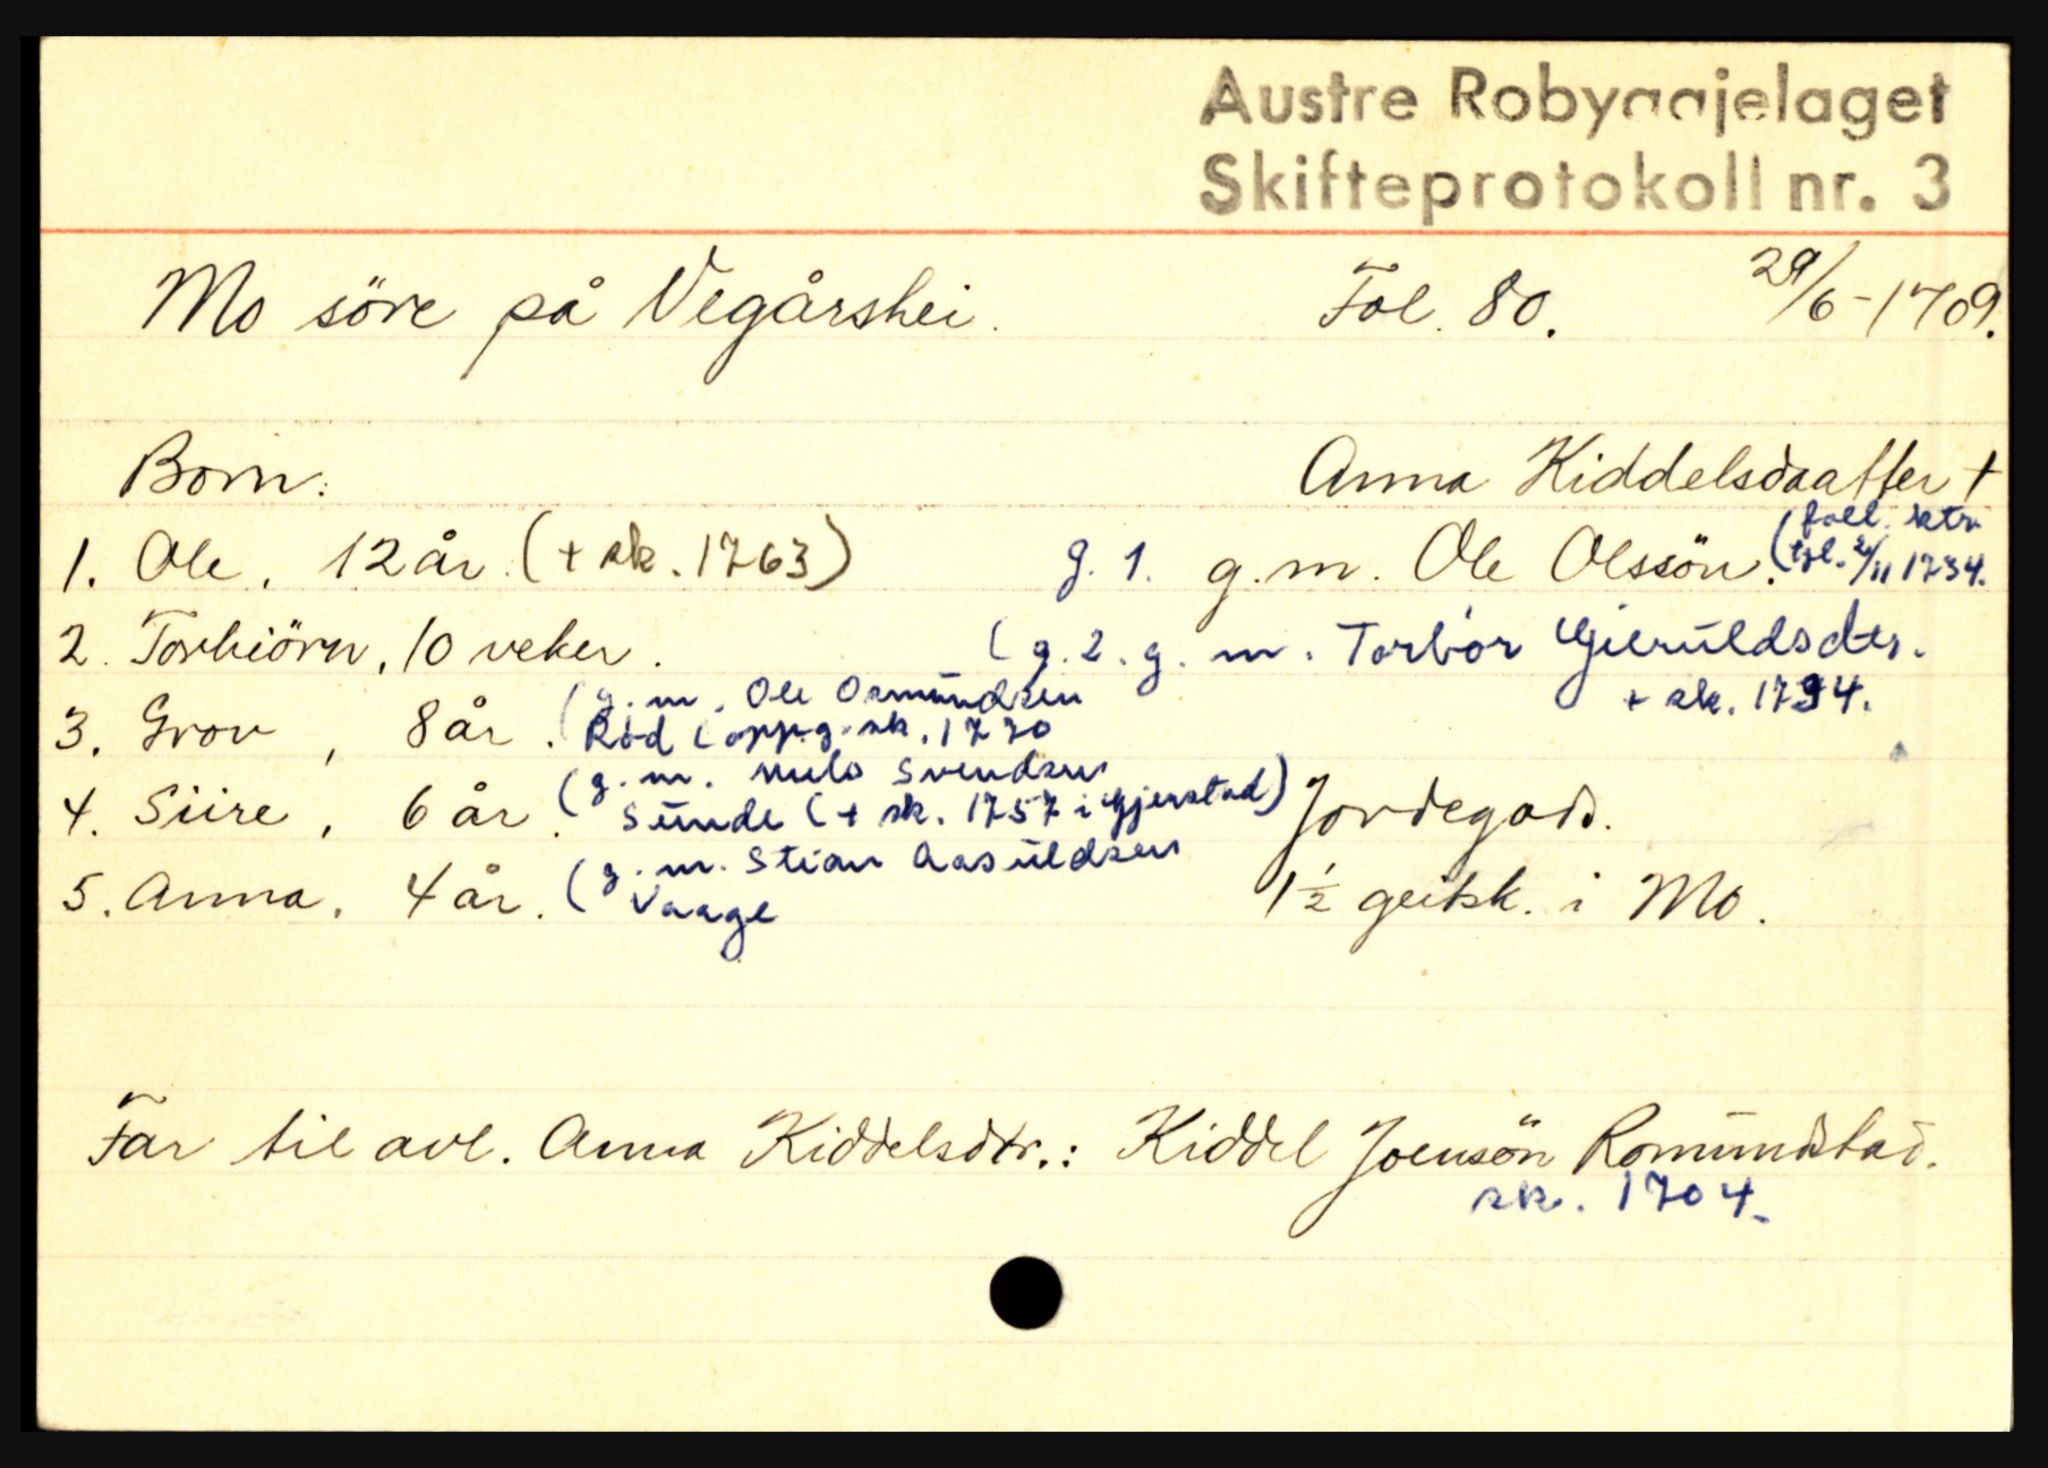 Austre Robyggjelaget
Skifteprotokoll nr. 3
Mo söre på Vegårshei. Fol. 80. 29/6-1709.
Born: Anna Kiddelsdaatter +
1. Ole, 12 år. (+ sk. 1763) g. 1. g.m. Ole Olssön. (foll. sktr. tgl. 2/11 1734.
2. Torbiörn, 10 veker. (g. 2. g. m. Torbor Gjeruldsdtr.
+ sk. 1794.
3. Grov, 8 år. (g. m. Ole Osmundsen
Röd (oppg. sk. 1770
4. Siire, 6 år. (g. m. Nils Svendsen
Sunde (+ sk. 1757 i Gjerstad) Jordegods.
5. Anna, 4 år. (g. m. Stian Aasuldsen
Vaage 1½ geitsk. i Mo.
Far til avl. Anna Kiddelsdtr.: Kiddel Joensön Romundstad.
sk. 1704.